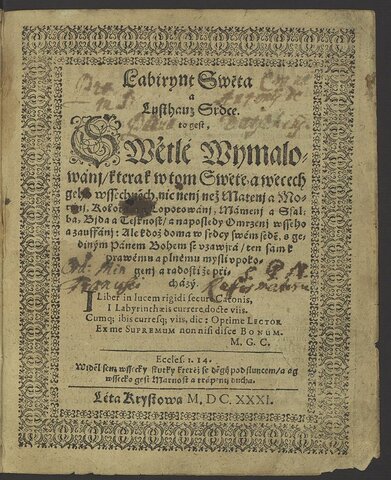 Labirynt Swěta
a
Lusthauz Srdce.
to gest,
Swětlé Wymalo-
wánj/ kterak w tom Swětě, a wěcech
geho wssechněch, nic nenj než Matenj a Mo-
tanj, Kolo Lopotowánj, Mámenj a Ssal-
ba, Bjda a Tesknost/ a naposledy Omrzenj wsseho
a zauffánj: Ale kdož doma w srdcy swém sedě, s ge-
diným Pánem Bohem se vzawjrá / ten sám k
prawému a plnému mysli vpoko-
genj a radosti že při-
cházý.
I Liber in lucem rigidi secure Catonis,
I Labyrinthæis currere, docte viis.
Cumq; ibis curresq; viis, dic: Optime LECTOR
Ex me SUPREMUM non nisi disce BONUM.
M. G. C.
Eccles. 1. 14.
Widěl sem wssecky skutky kteréž se děgj pod sluncem/ a ag
wssecko gest Marnost a trápenj ducha.
Léta Krystowa M, DC. XXXI.